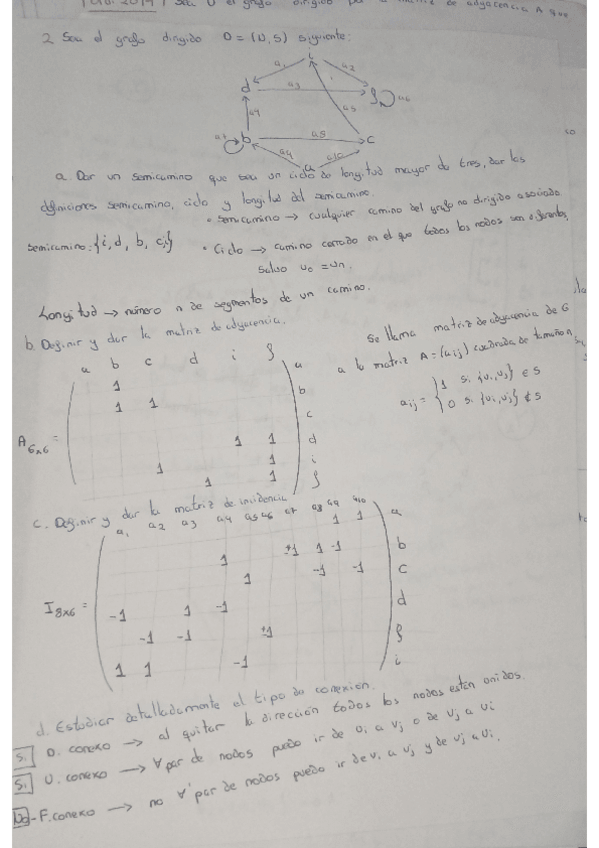 2. Sea el grafo dirigido D=(U,S) siguiente:
i
a1 a2
d a3 f a6
a4 a5
a7 b a8 c
a9 a10
a
a. Dar un semicamino que sea un ciclo de longitud mayor de tres, dar las
definiciones semicamino, ciclo y longitud del semicamino.
• semicamino → cualquier camino del grafo no dirigido asociado
semicamino: {i, d, b, c, i}
• Ciclo → camino cerrado en el que todos los nodos son diferentes,
salvo u0 = un.
Longitud → número n de segmentos de un camino.
b. Definir y dar la matriz de adyacencia.
Se llama matriz de adyacencia de G
a la matriz A=(aij) cuadrada de tamaño n
aij = { 1 si {vi,vj} ∈ S
0 si {vi,vj} ∉ S
a b c d i f
1 a
1 1 b
c
A6x6 = 1 1 d
1 i
1 1 f
c. Definir y dar la matriz de incidencia
a1 a2 a3 a4 a5 a6 a7 a8 a9 a10
1 1 a
1 ±1 1 -1 b
1 -1 -1 c
I8x6 = -1 1 -1 d
-1 -1 ±1 f
1 1 -1 i
d. Estudiar detalladamente el tipo de conexión.
Si D. conexo → al quitar la dirección todos los nodos están unidos.
Si U. conexo → ∀ par de nodos puedo ir de vi a vj o de vj a vi
No - F. conexo → no ∀ par de nodos puedo ir de vi a vj y de vj a vi.